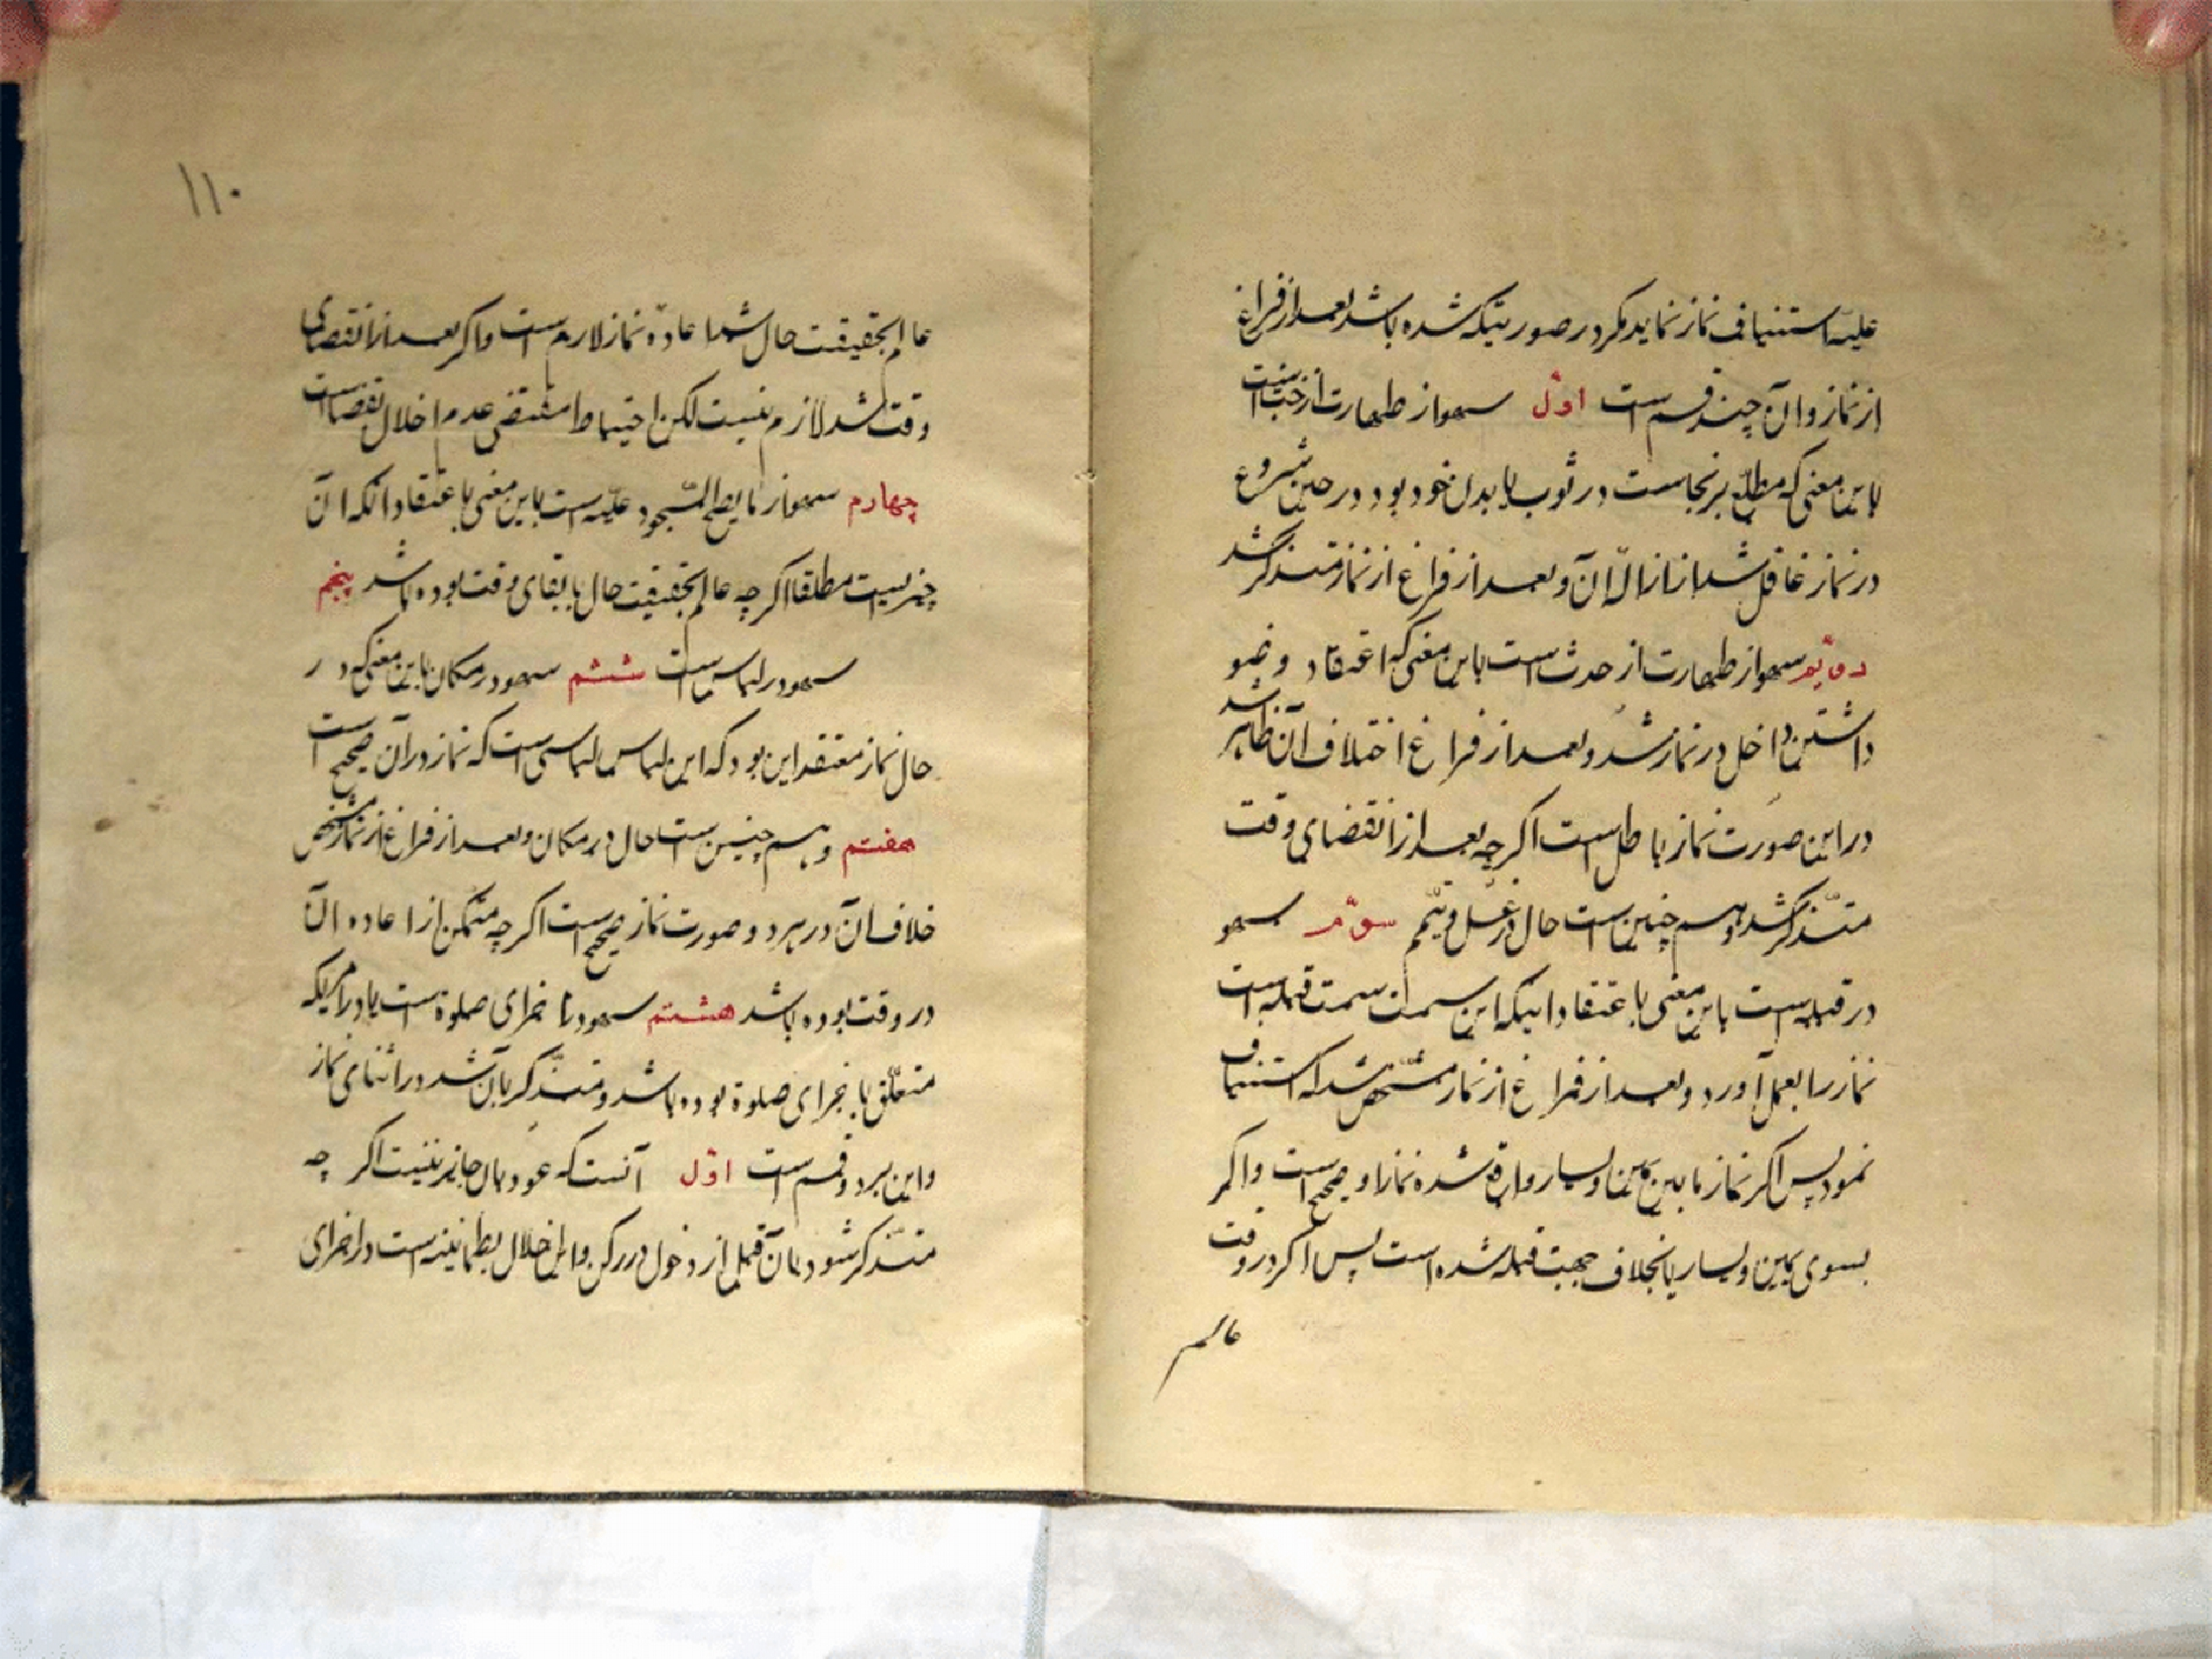 علیه استیناف نماز نماید مگر در صورتیکه شده باشد بعد از فراغ
از نماز و آن چند قسم است اوّل سهو از طهارت از خبث است
باین معنی که مطلع بر نجاست در ثوب یا بدن خود بود در حین شروع
در نماز غافل شد از ازالهٔ آن و بعد از فراغ از نماز متذکر شد
دویّم سهو از طهارت از حدث است باین معنی که باعتقاد وضو
داشتن داخل در نماز شد و بعد از فراغ اختلاف آن ظاهر شد
در این صورت نماز باطل است اگر چه بعد از انقضای وقت
متذکّر شد و هم چنین است حال در غسل و تیمّم سوّم سهو
در قبله است باین معنی باعتقاد اینکه این سمت سمت قبله است
نماز را بعمل آورد و بعد از فراغ از نماز مشخّص شد که استیناف
نمود پس اگر نماز ما بین یمین و یسار واقع شده نماز او صحیح است و اگر
بسوی یمین و یسار یا بخلاف جهت قبله شده است پس اگر در وقت
عالم
۱۱۰
عالم بحقیقت حال شد اعادهٔ نماز لازم است و اگر بعد از انقضای
وقت شد لازم نیست لکن احتیاط مقتضی عدم اخلال بقضا است
چهارم سهو از ما یصح السّجود علیه است باین معنی باعتقاد آنکه آن
چیزیست مطلقا اگر چه عالم بحقیقت حال با بقای وقت بوده باشد پنجم
سهو در لباس است ششم سهو در مکان باین معنی که در
حال نماز معتقد این بود که این لباس لباسی است که نماز در آن صحیح است
هفتم و هم چنین است حال در مکان و بعد از فراغ از نماز مشخص
خلاف آن در هر دو صورت نماز صحیح است اگر چه متمکن از اعاده آن
در وقت بوده باشد هشتم سهو در اجزای صلوة است یا در امریکه
متعلّق باجزای صلوة بوده باشد و متذکّر بآن شد در اثنای نماز
و این بر دو قسم است اوّل آنست که عود بآن جایز نیست اگر چه
متذکّر شود بآن قبل از دخول در رکن و این اخلال بطمانینه است در اجزای